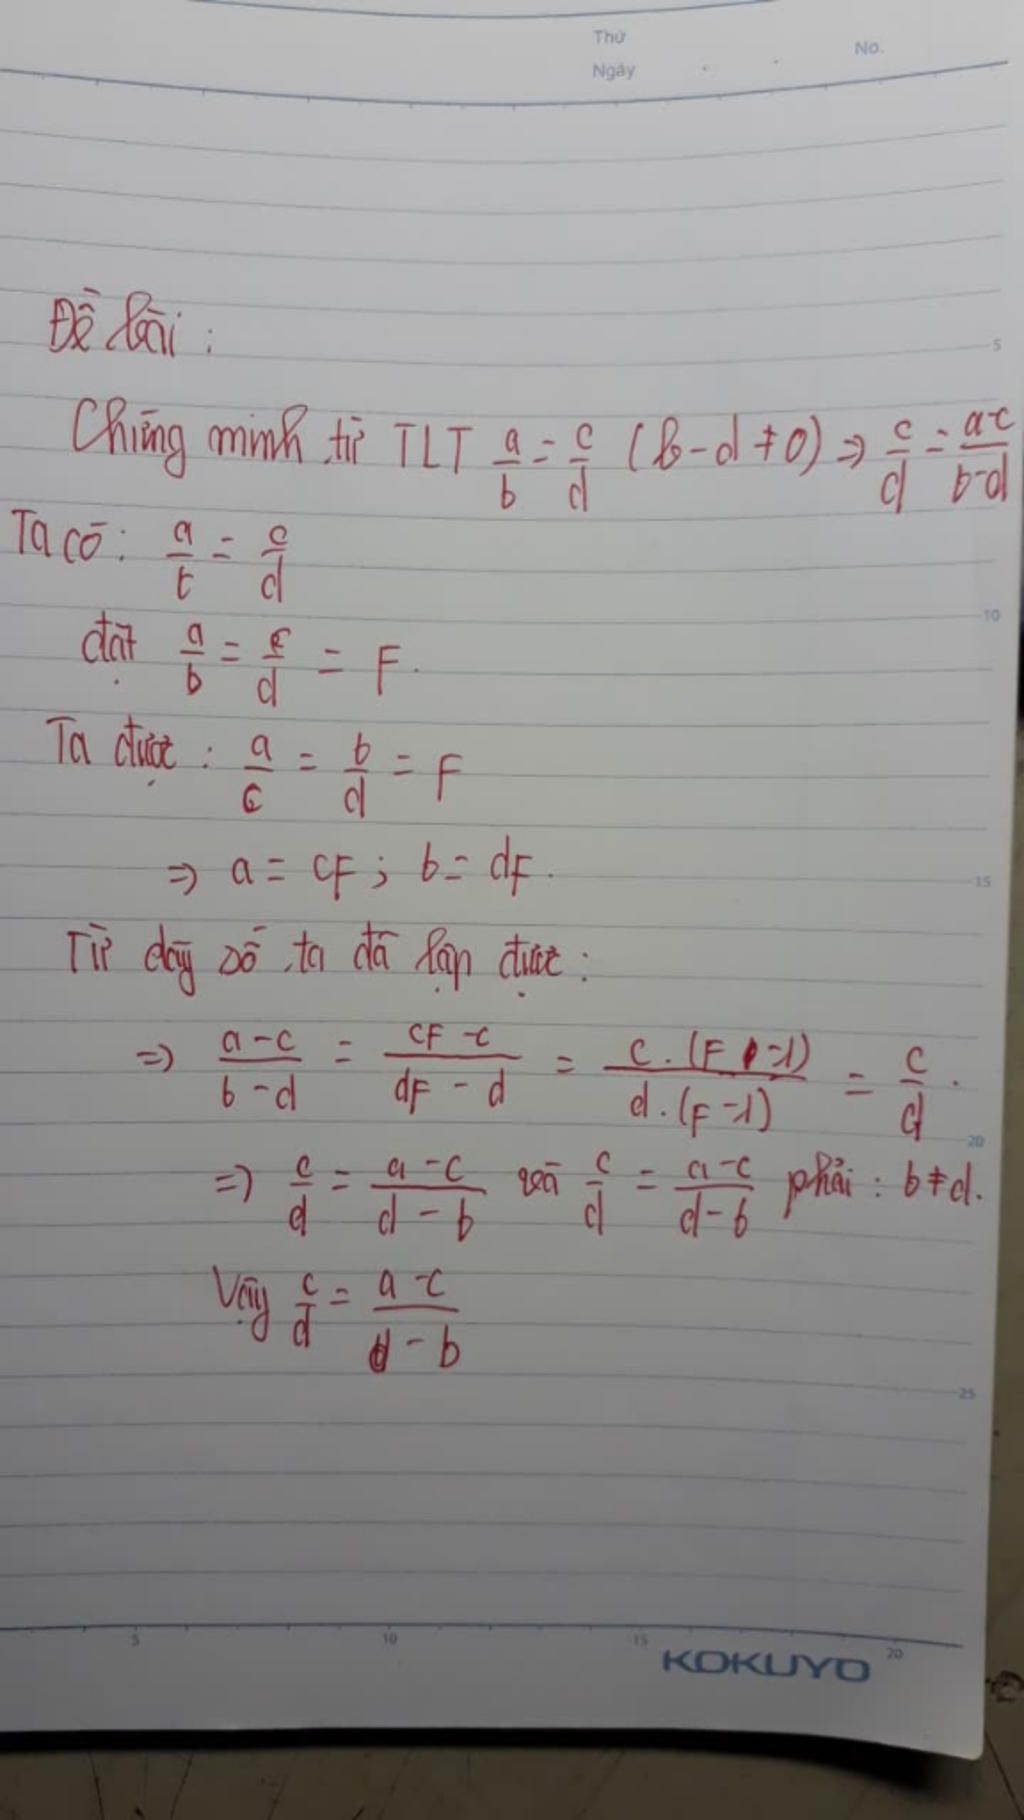 Thứ
Ngày
No.
Đề bài :
Chứng minh từ TLT a/b = c/d (b - d ≠ 0) => c/d = a-c/b-d
Ta có : a/t = c/d
đặt a/b = c/d = F.
Ta được : a/c = b/d = F
=> a = cF ; b = dF.
Từ dãy số ta đã lập được :
=> a-c/b-d = cF-c/dF-d = c.(F-1)/d.(F-1) = c/d.
=> c/d = a-c/d-b và c/d = a-c/d-b phải : b ≠ d.
Vậy c/d = a-c/d-b
5
10
15
20
25
5 10 15 20
KOKUYO